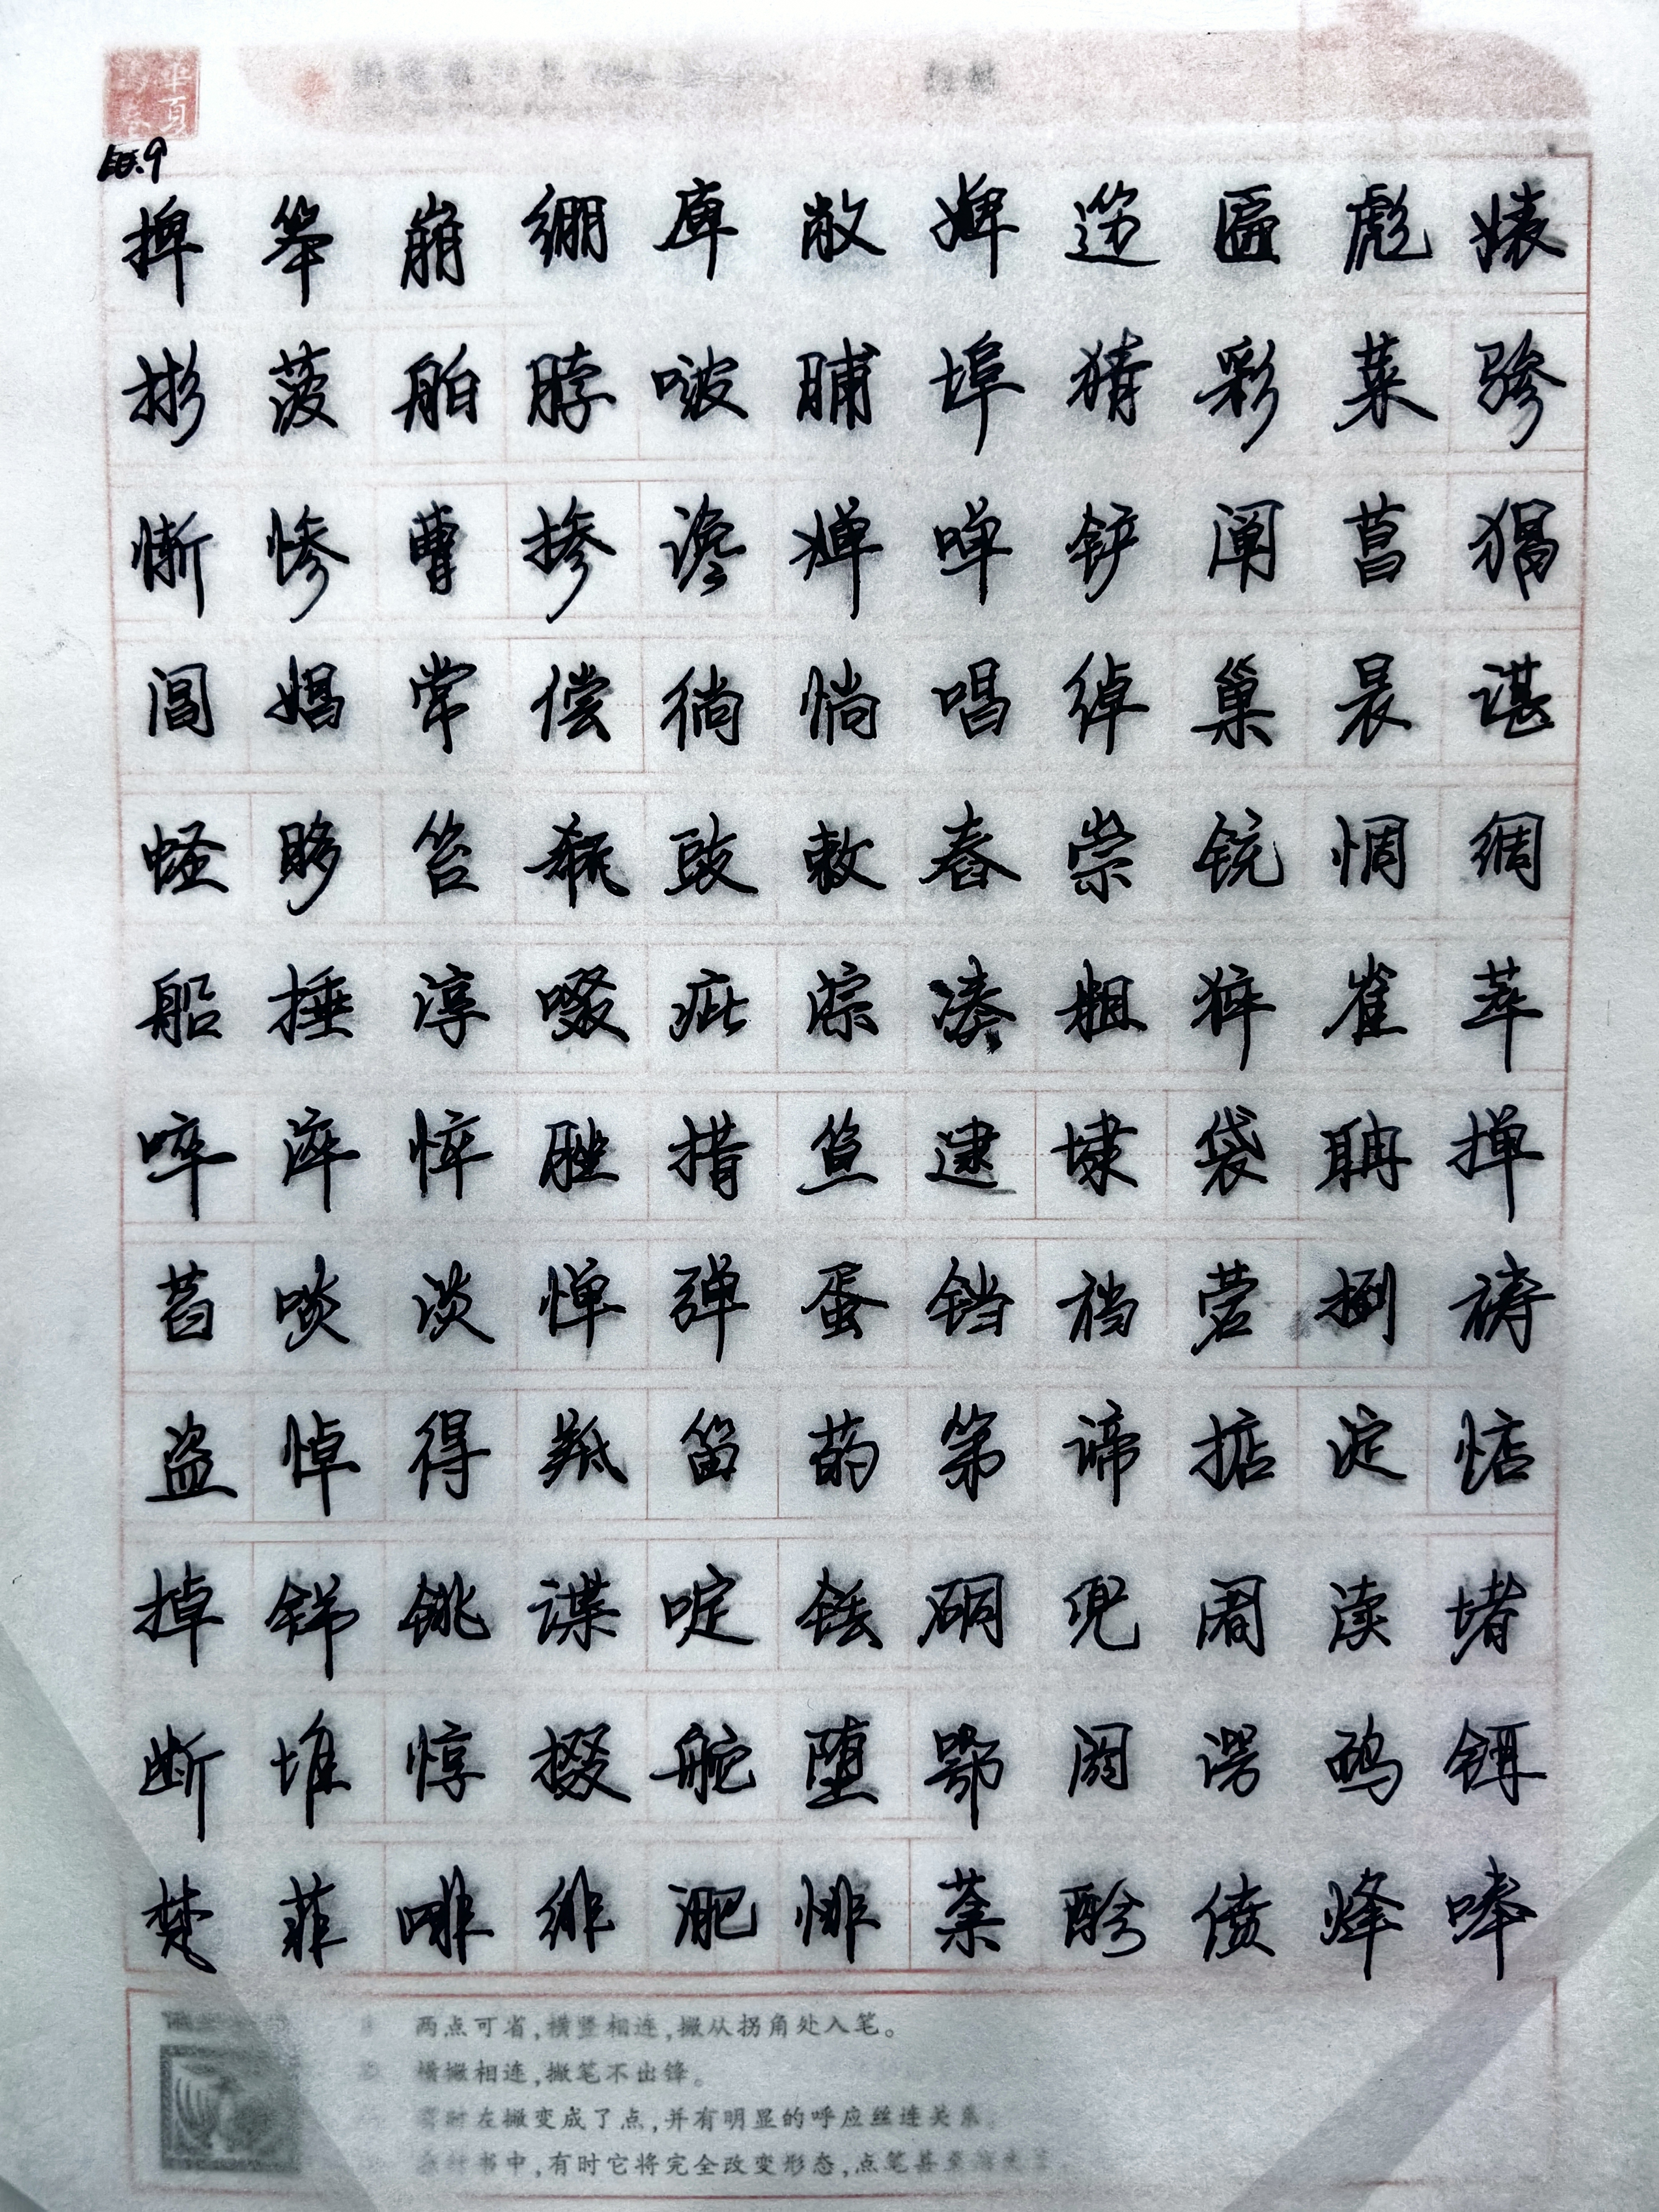 华夏
10.9
捭 笨 崩 绷 庳 敝 婢 笾 匾 彪 婊
彬 菠 舶 脖 啵 脯 埠 猜 彩 菜 骖
惭 惨 曹 掺 谗 婵 啴 铲 阐 菖 猖
阊 娼 常 偿 徜 惝 唱 绰 巢 晨 谌
蛏 眵 笞 瓻 豉 敕 舂 崇 铳 惆 绸
船 捶 淳 啜 疵 淙 凑 粗 猝 崔 萃
啐 淬 悴 脞 措 笪 逮 埭 袋 聃 掸
萏 啖 淡 惮 弹 蛋 铛 裆 菪 捯 祷
盗 悼 得 羝 笛 菂 第 谛 掂 淀 惦
掉 铞 铫 谍 啶 铥 硐 兜 阇 渎 堵
断 堆 惇 掇 舵 堕 鄂 阏 谔 硭 铒
梵 菲 啡 绯 淝 悱 棻 酚 偾 烽 唪
两点可省,横竖相连,撇从拐角处入笔。
横撇相连,撇笔不出锋。
有时左撇变成了点,并有明显的呼应丝连关系
书中,有时它将完全改变形态,点笔甚至